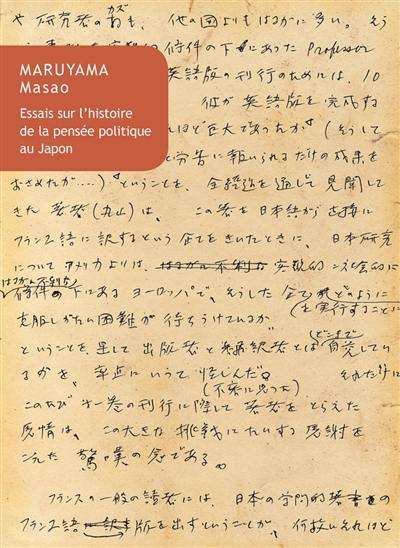 や研究者のカズも、他の国よりもはるかに多い。そう
条件の下にあったProfessor
MARUYAMA
Masao
Essais sur l'histoire
de la pensée politique
au Japon
英語版の刊行のためには、10
彼が英語版を完成する
ほど巨大であったか（そうして
労苦に報いられるだけの成果を
おさめたか‥‥）ということを、全経過を通じて見聞して
きた著者（丸山）は、この書を日本語から直接に
フランス語に訳するという企てをきいたときに、日本研究
についてアメリカよりは、はるかに不利な 実現的
はるかに不利な
条件の下にあるヨーロッパで、そうした企て
を実行することに
克服しがたい困難が待ちうけているか
ということを、果して出版者と翻訳者とはどこまで自覚してい
るかを、率直にいって怪しんだ。
（不安に思った） それだけに
このたび第一巻の刊行に際して著者をとらえた
感情は、この大きな挑戦にたいする感謝を
こえた驚嘆の念である。
フランスの一般の読者には、日本の学問的著書の
フランス語版を出すということが、何故それほど